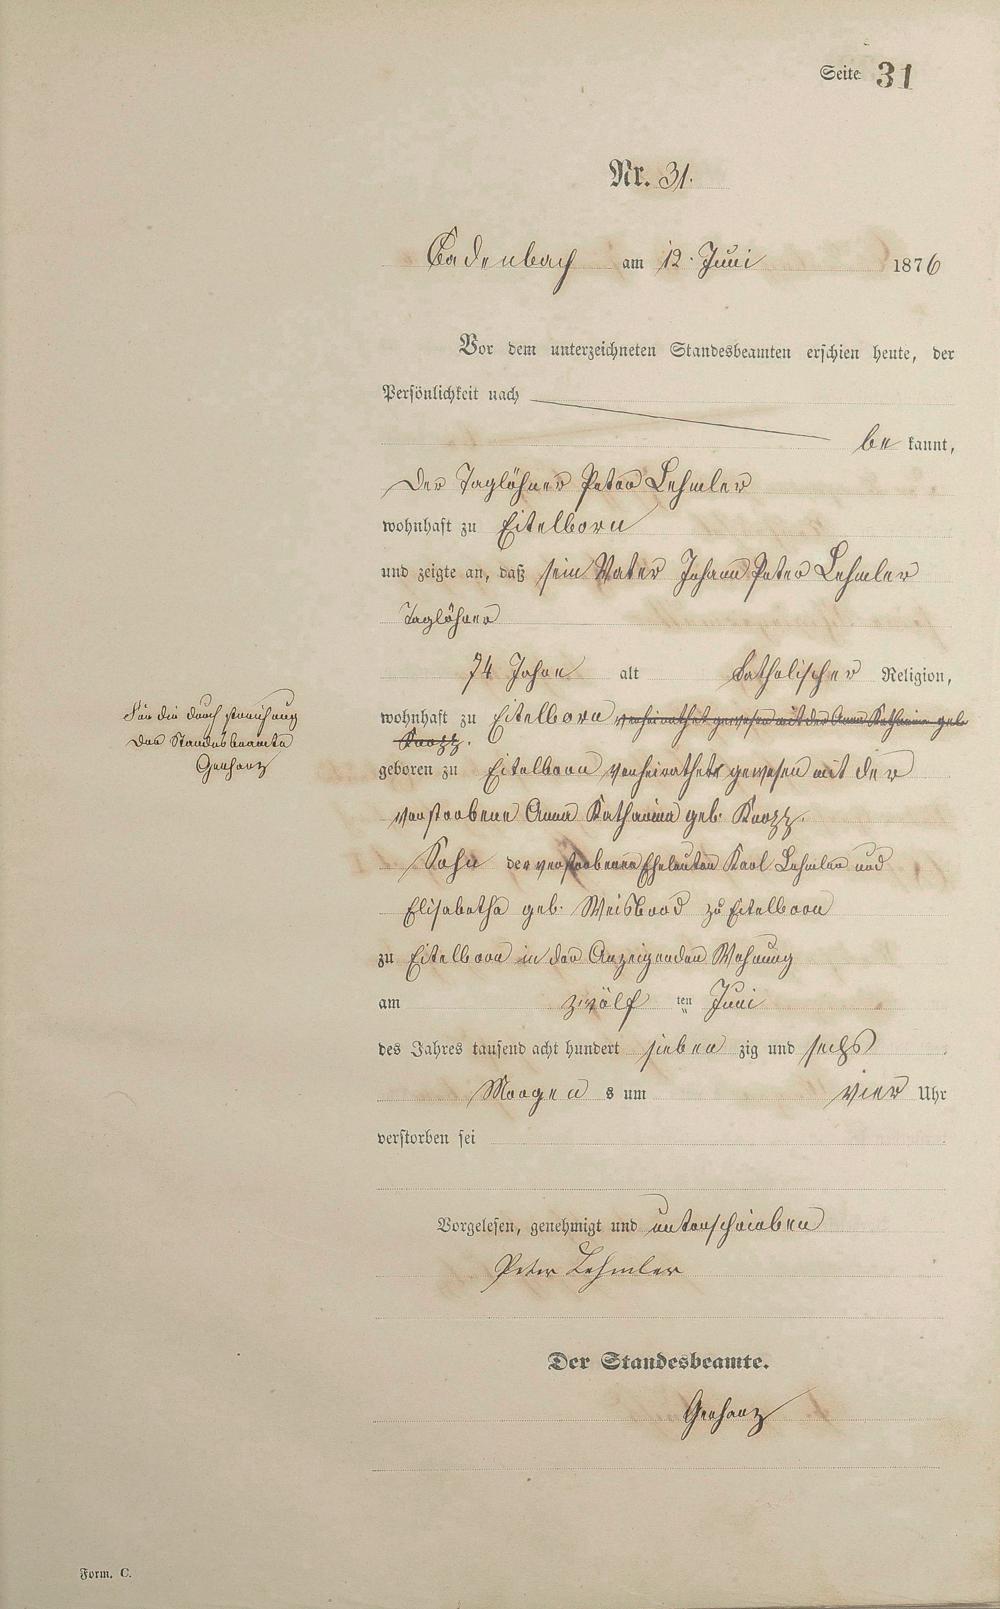 Seite 31
Nr. 31.
Cadenbach am 12. Juni 1876
Vor dem unterzeichneten Standesbeamten erschien heute, der
Persönlichkeit nach
be kannt,
der Taglöhner Peter Lehmler
wohnhaft zu Eitelborn
und zeigte an, daß sein Vater Johann Peter Lehmler
Taglöhner
74 Jahre alt katholischer Religion,
wohnhaft zu Eitelborn verheirathet gewesen mit der Anna Katharina geb
Knopp.
Für die durch streichung
Der Standesbeamte
Gerharz
geboren zu Eitelborn verheirathet gewesen mit der
verstorbene Anna Katharina geb. Knopp.
Sohn der verstorbenen Eheleuten Karl Lehmler und
Elisabetha geb. Weisbrod zu Eitelborn
zu Eitelborn in der Anzeigenden Wohnung
am zwölf ten Juni
des Jahres tausend acht hundert sieben zig und sechs
Morgen s um vier Uhr
verstorben sei
Vorgelesen, genehmigt und unterschrieben
Peter Lehmler
Der Standesbeamte.
Gerharz
Form. C.